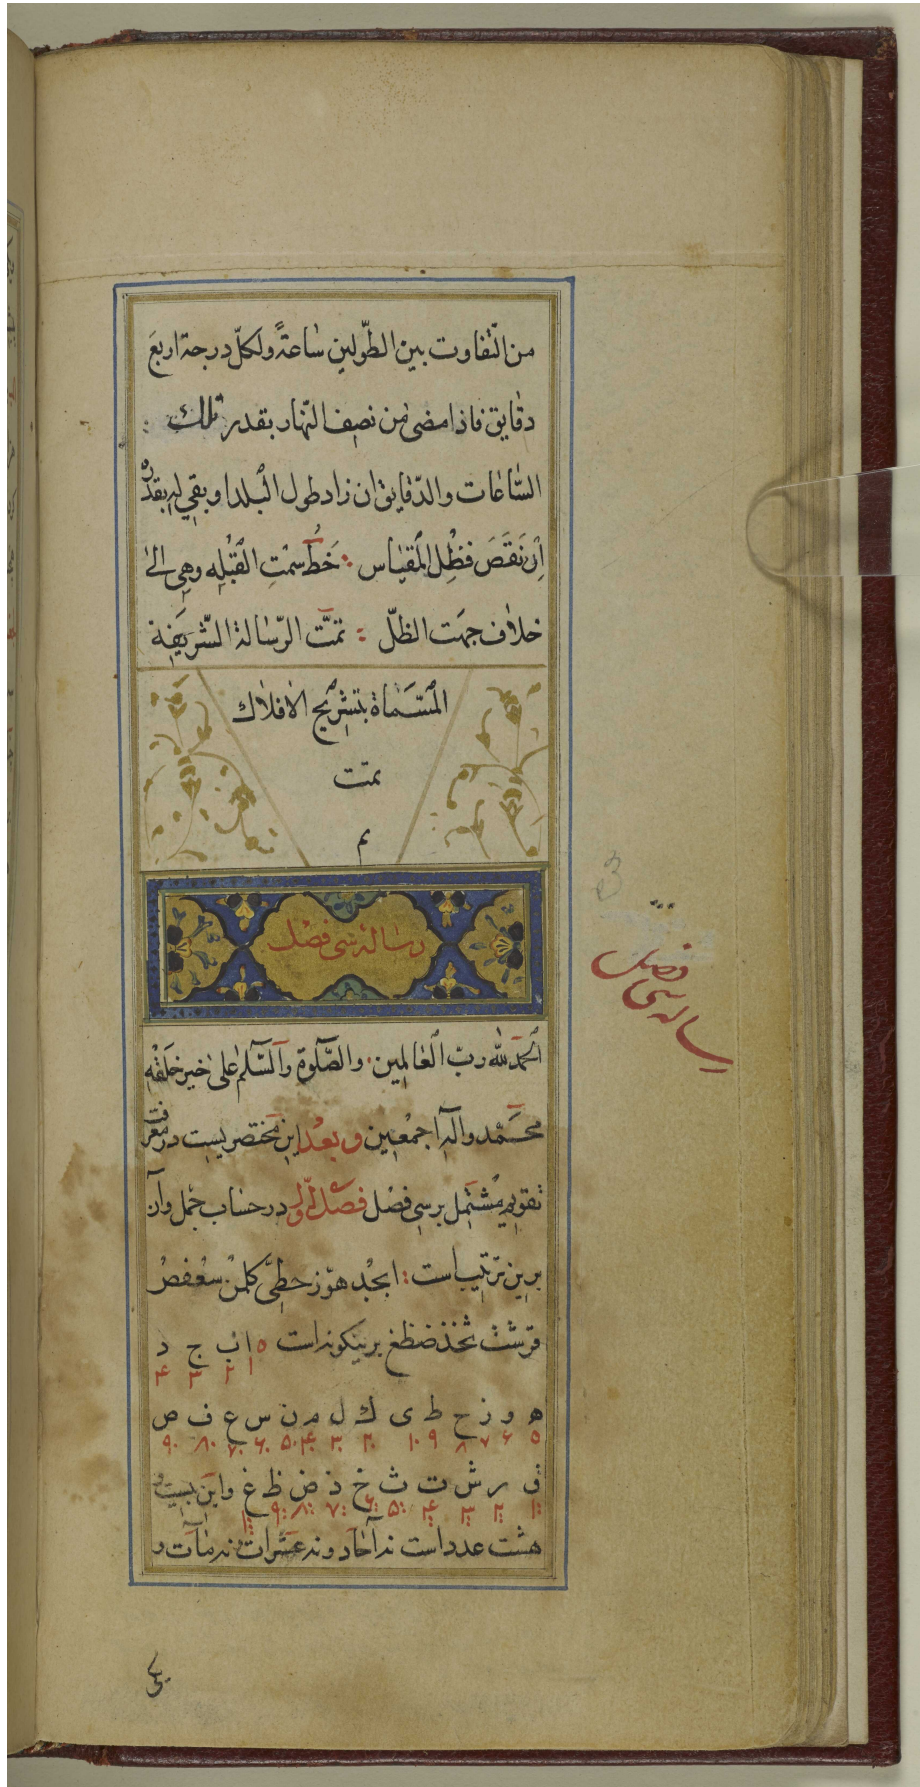 من التّفاوت بين الطّولين ساعةً ولكلّ درجة اربعَ
دقايق فاذا مضى من نصف النّهار بقدر تلك :
السّاعات والدّقايق ان زاد طول البلد او بقي له بقدره
اِن نَقَصَ فظِل المقياس خَطُّ سمتِ القبلِه وهي الى
خلاف جهت الظلّ تمّت الرّسالة الشّريفة
المُسَّماة بتشريح الافلاك
تمت
م
رساله سی فصل
رساله سی فصل
الحمدلله ربّ العالمین والصّلوة والسّلم علی خیر خلقه
محمّد واله اجمعین وبعد این مختصریست در معرفت
تقویم مشتمل بر سی فصل فصل اوّل در حساب جمل وآن
برین ترتیب است ابجد هوّز حطّی کلمن سعفص
قرشت ثخذ ضظغ برینکونه است ا ب ج د
۱ ۲ ۳ ۴
ه و ز ح ط ی ك ل م ن س ع ف ص
۵ ۶ ۷ ۸ ۹ ۱۰ ۲۰ ۳۰ ۴۰ ۵۰ ۶۰ ۷۰ ۸۰ ۹۰
ق ر ش ت ث خ ذ ض ظ غ واین بیست و
هشت عدد است نه آحاد ونه عشرات ونه مآت و